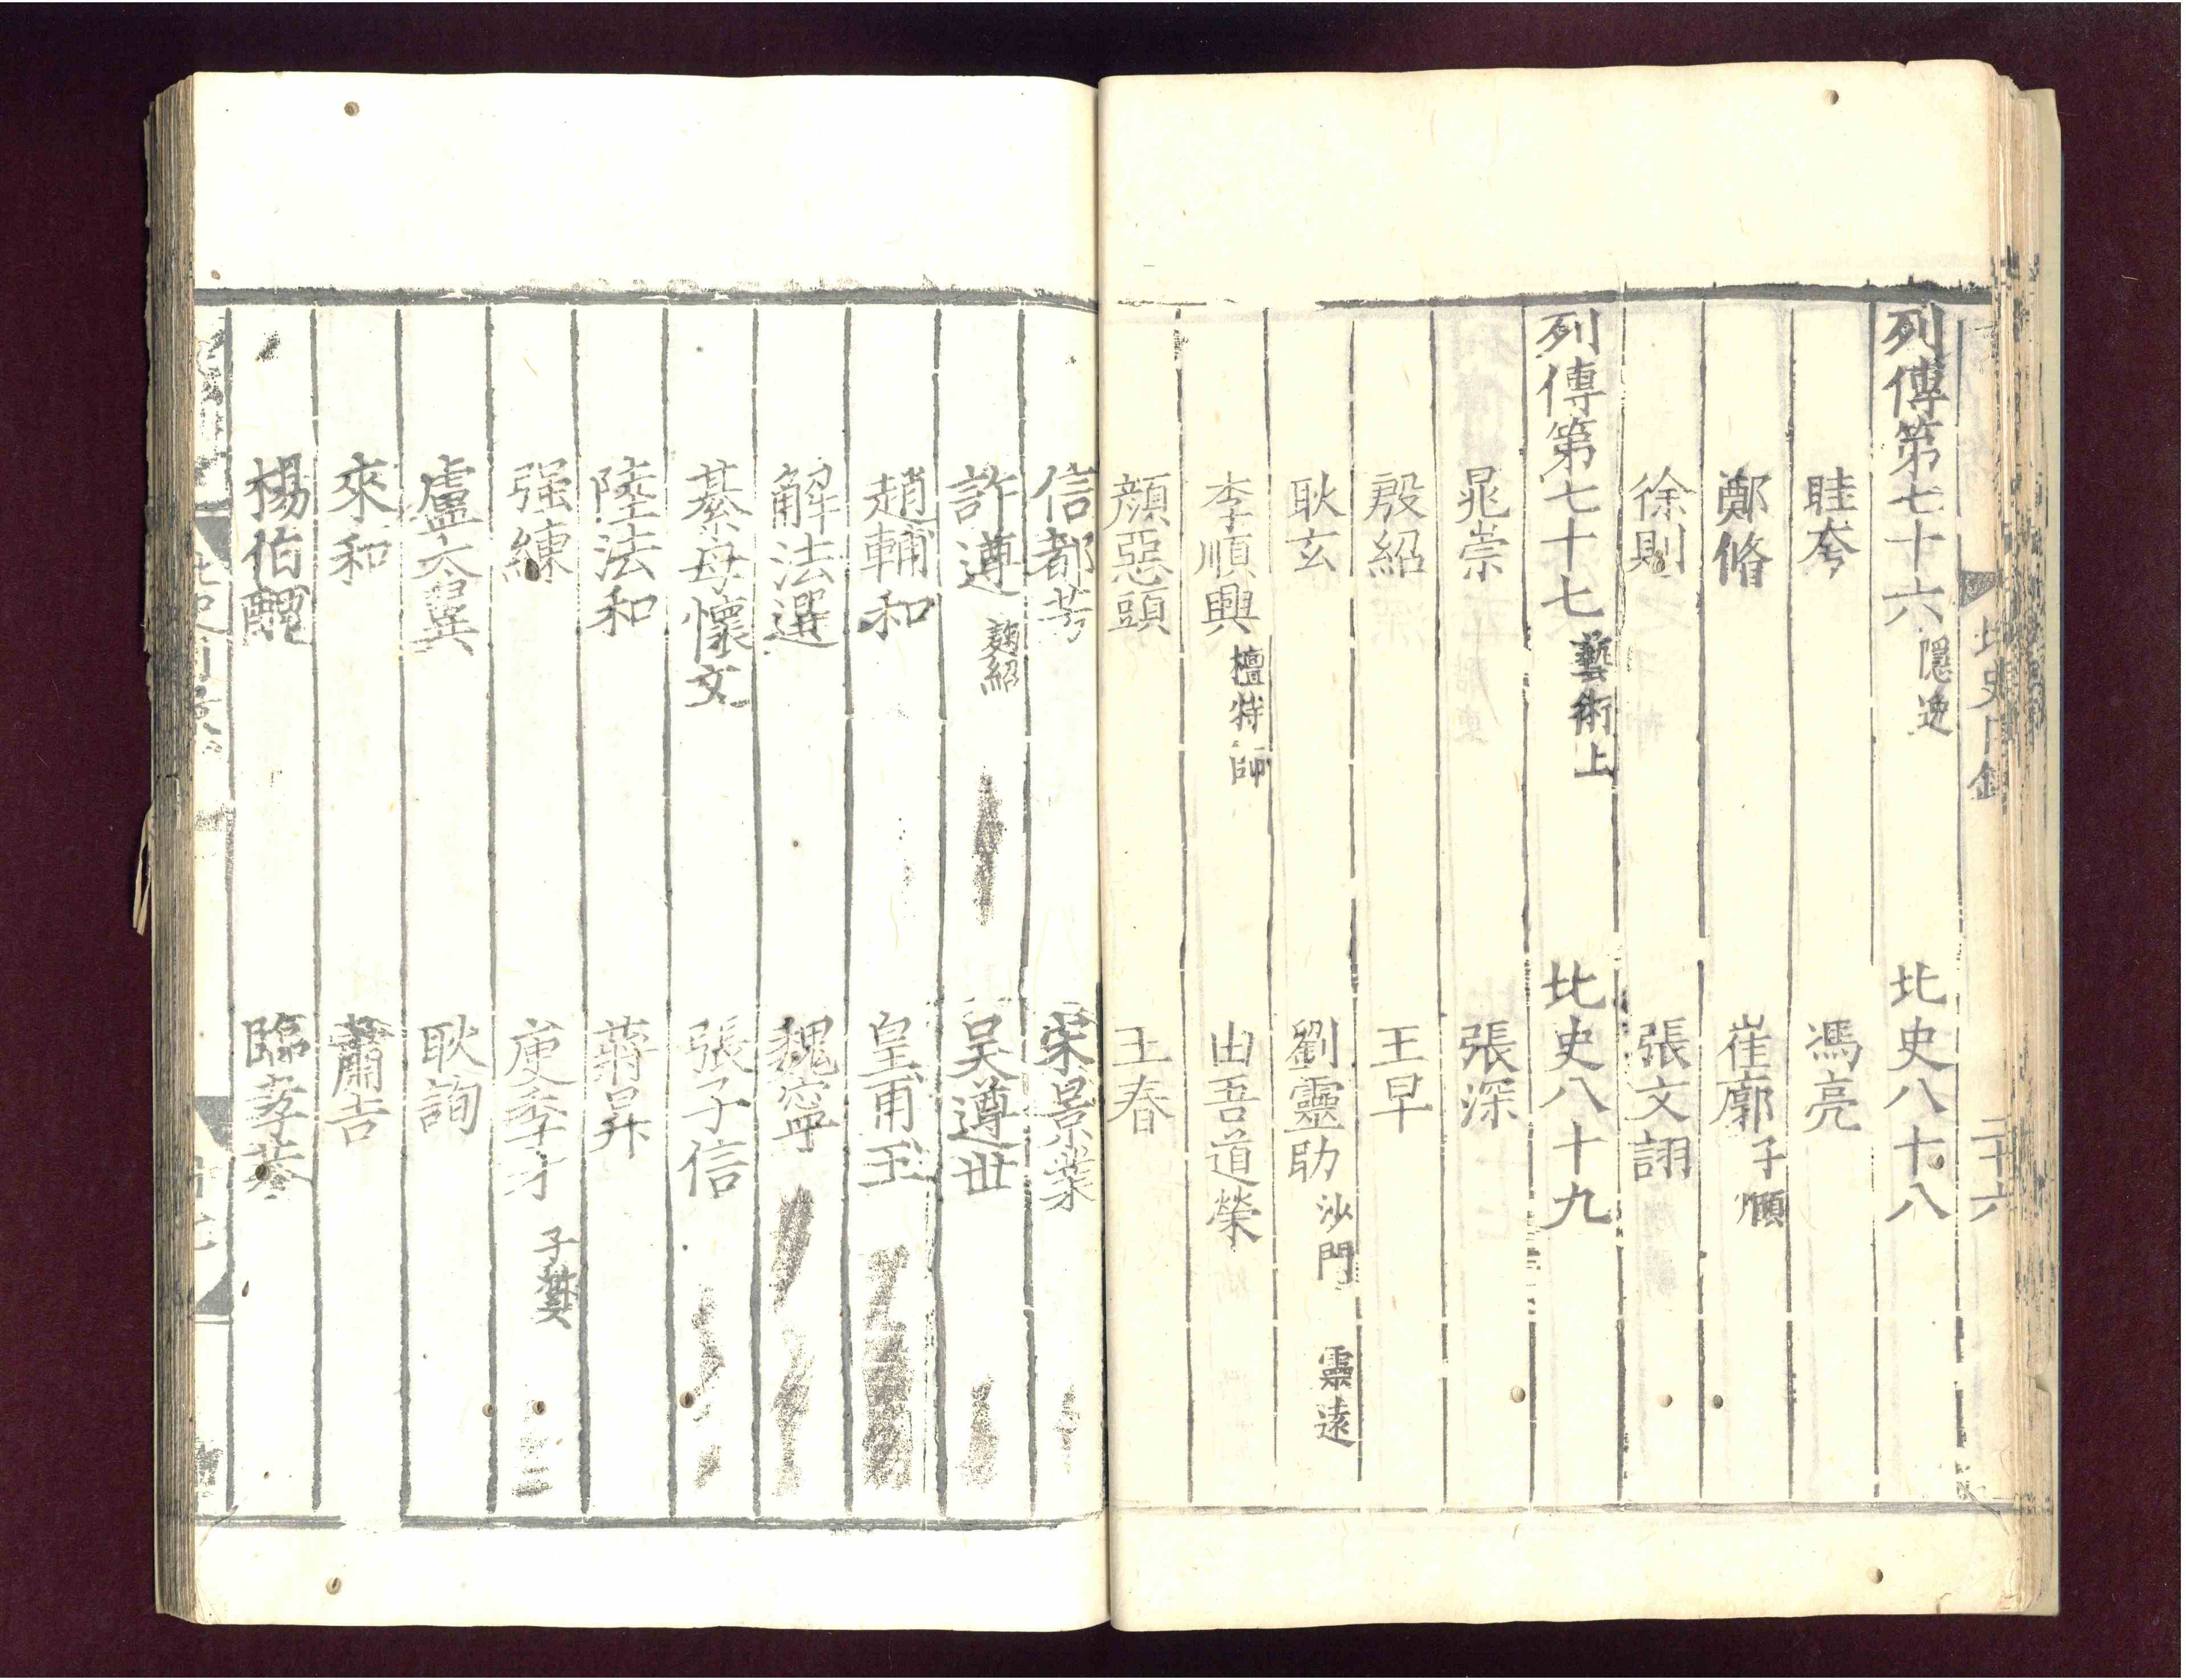 北史目錄 二十六
列傳第七十六 隱逸 北史八十八
眭夸 馮亮
鄭脩 崔廓 子賾
徐則 張文詡
列傳第七十七 藝術上 北史八十九
晁崇 張深
殷紹 王早
耿玄 劉靈助 沙門靈遠
李順興 檀特師 由吾道榮
顏惡頭 王春
信都芳 宋景業
許遵 麹紹 吳遵世
趙輔和 皇甫玉
解法選 魏寧
綦母懷文 張子信
陸法和 蔣昇
强練 庾季才 子質
盧太翼 耿詢
來和 蕭吉
楊伯醜 臨孝恭